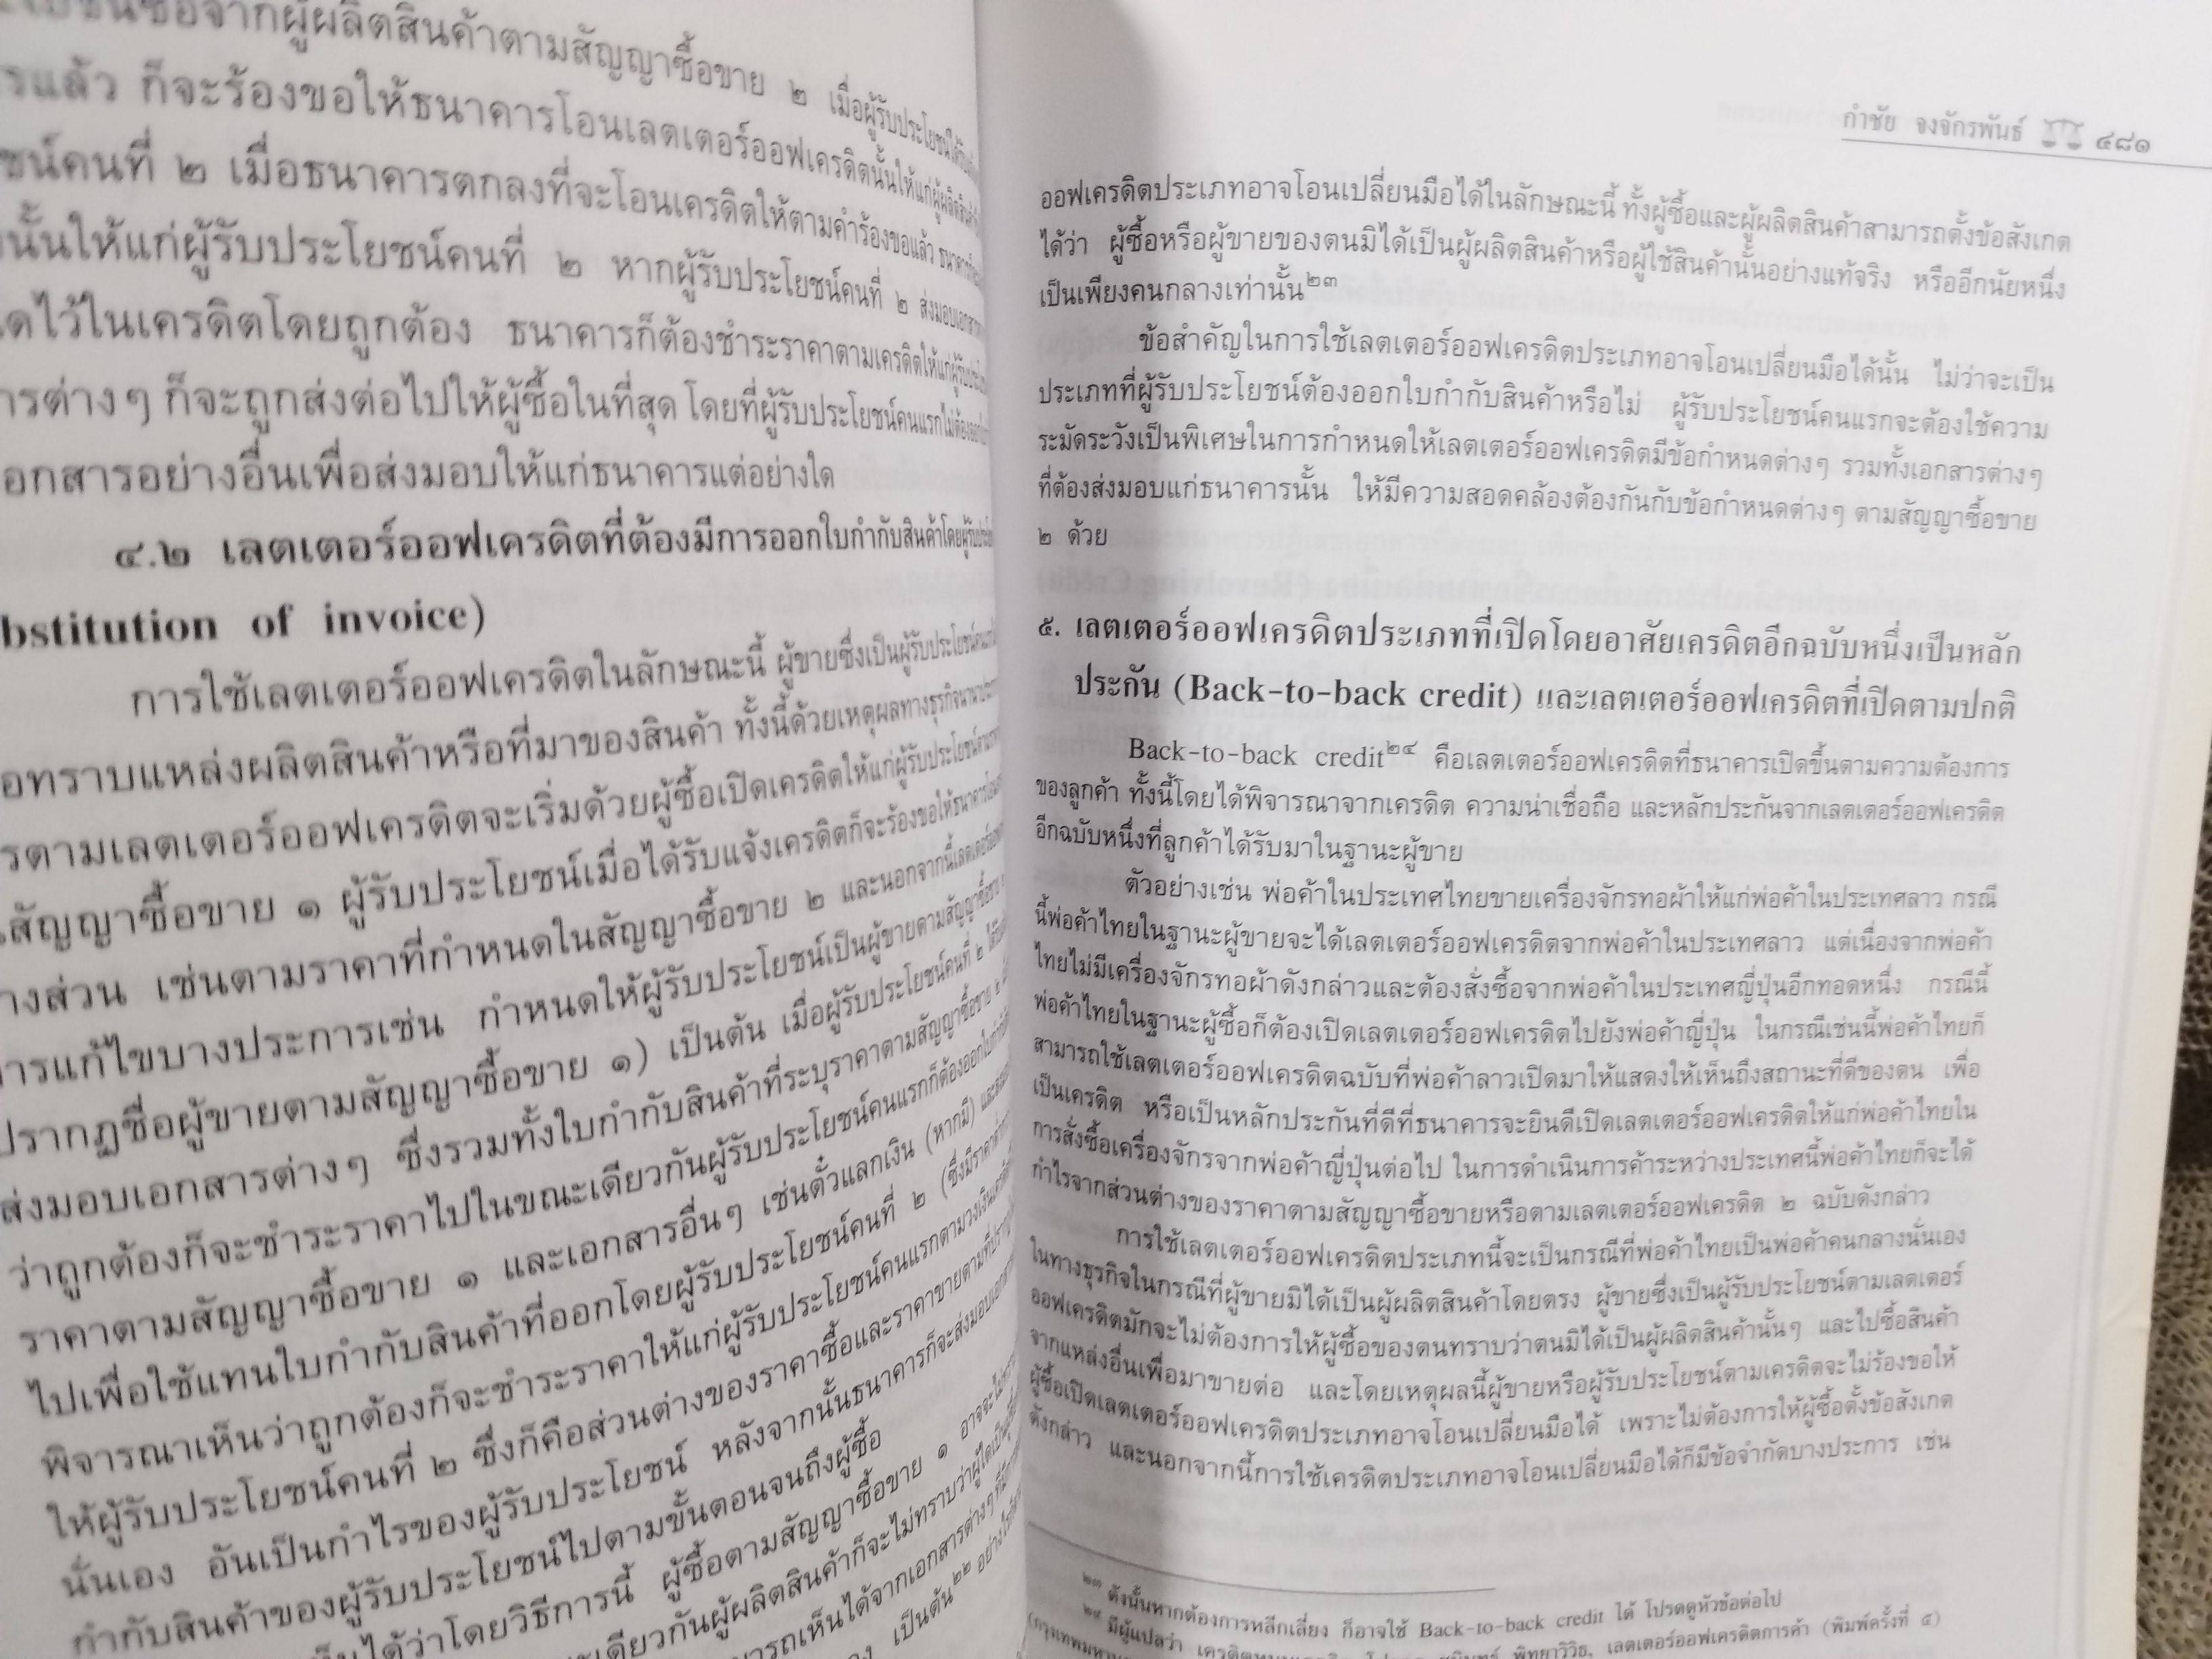 เยชนซื้อจากผู้ผลิตสินค้าตามสัญญาซื้อขาย ๒ เมื่อผู้รับประโยชน์ได้
รแล้ว ก็จะร้องขอให้ธนาคารโอนเลตเตอร์ออฟเครดิตนั้นให้แก่ผู้ผลิตสินค้า
ชน์คนที่ ๒ เมื่อธนาคารตกลงที่จะโอนเครดิตให้ตามคำร้องขอแล้ว ธนาคารก็
นั้นให้แก่ผู้รับประโยชน์คนที่ ๒ หากผู้รับประโยชน์คนที่ ๒ ส่งมอบเอกสาร
ดไว้ในเครดิตโดยถูกต้อง ธนาคารก็ต้องชำระราคาตามเครดิตให้แก่ผู้รับ
ารต่างๆ ก็จะถูกส่งต่อไปให้ผู้ซื้อในที่สุด โดยที่ผู้รับประโยชน์คนแรกไม่ต้อง
อกสารอย่างอื่นเพื่อส่งมอบให้แก่ธนาคารแต่อย่างใด
๔.๒ เลตเตอร์ออฟเครดิตที่ต้องมีการออกใบกำกับสินค้าโดยผู้รับ
bstitution of invoice)
การใช้เลตเตอร์ออฟเครดิตในลักษณะนี้ ผู้ขายซึ่งเป็นผู้รับประโยชน์
อทราบแหล่งผลิตสินค้าหรือที่มาของสินค้า ทั้งนี้ด้วยเหตุผลทางธุรกิจ
รตามเลตเตอร์ออฟเครดิตจะเริ่มด้วยผู้ซื้อเปิดเครดิตให้แก่ผู้รับประโยชน์
สัญญาซื้อขาย ๑ ผู้รับประโยชน์เมื่อได้รับแจ้งเครดิตก็จะร้องขอให้ธนาคาร
างส่วน เช่นตามราคาที่กำหนดในสัญญาซื้อขาย ๒ และนอกจากนี้
ารแก้ไขบางประการเช่น กำหนดให้ผู้รับประโยชน์เป็นผู้ขายตามสัญญาซื้อขาย
ปรากฏชื่อผู้ขายตามสัญญาซื้อขาย ๑) เป็นต้น เมื่อผู้รับประโยชน์คนที่ ๒
ส่งมอบเอกสารต่างๆ ซึ่งรวมทั้งใบกำกับสินค้าที่ระบุราคาตามสัญญาซื้อขาย ๒
ว่าถูกต้องก็จะชำระราคาไปในขณะเดียวกันผู้รับประโยชน์คนแรกก็ต้องออก
ราคาตามสัญญาซื้อขาย ๑ และเอกสารอื่นๆ เช่นตั๋วแลกเงิน (หากมี)
ไปเพื่อใช้แทนใบกำกับสินค้าที่ออกโดยผู้รับประโยชน์คนที่ ๒ (ซึ่งมีราคา
พิจารณาเห็นว่าถูกต้องก็จะชำระราคาให้แก่ผู้รับประโยชน์คนแรกตามวงเงิน
ให้ผู้รับประโยชน์คนที่ ๒ ซึ่งก็คือส่วนต่างของราคาซื้อและราคาขายตามที่
นั่นเอง อันเป็นกำไรของผู้รับประโยชน์ หลังจากนั้นธนาคารก็จะส่งมอบ
กำกับสินค้าของผู้รับประโยชน์ไปตามขั้นตอนจนถึงผู้ซื้อ
ได้ว่าโดยวิธีการนี้ ผู้ซื้อตามสัญญาซื้อขาย ๑ อาจจะไม่
ะเดียวกันผู้ผลิตสินค้าก็จะไม่ทราบว่าผู้ใดเป็น
ารถเห็นได้จากเอกสารต่างๆ ที่มี
เป็นต้น๒๒
กำชัย จงจักรพันธ์ ๔๘๑
ออฟเครดิตประเภทอาจโอนเปลี่ยนมือได้ในลักษณะนี้ ทั้งผู้ซื้อและผู้ผลิตสินค้าสามารถตั้งข้อสังเกต
ได้ว่า ผู้ซื้อหรือผู้ขายของตนมิได้เป็นผู้ผลิตสินค้าหรือผู้ใช้สินค้านั้นอย่างแท้จริง หรืออีกนัยหนึ่ง
เป็นเพียงคนกลางเท่านั้น๒๓
ข้อสำคัญในการใช้เลตเตอร์ออฟเครดิตประเภทอาจโอนเปลี่ยนมือได้นั้น ไม่ว่าจะเป็น
ประเภทที่ผู้รับประโยชน์ต้องออกใบกำกับสินค้าหรือไม่ ผู้รับประโยชน์คนแรกจะต้องใช้ความ
ระมัดระวังเป็นพิเศษในการกำหนดให้เลตเตอร์ออฟเครดิตมีข้อกำหนดต่างๆ รวมทั้งเอกสารต่างๆ
ที่ต้องส่งมอบแก่ธนาคารนั้น ให้มีความสอดคล้องต้องกันกับข้อกำหนดต่างๆ ตามสัญญาซื้อขาย
๒ ด้วย
๕. เลตเตอร์ออฟเครดิตประเภทที่เปิดโดยอาศัยเครดิตอีกฉบับหนึ่งเป็นหลัก
ประกัน (Back-to-back credit) และเลตเตอร์ออฟเครดิตที่เปิดตามปกติ
Back-to-back credit๒๔ คือเลตเตอร์ออฟเครดิตที่ธนาคารเปิดขึ้นตามความต้องการ
ของลูกค้า ทั้งนี้โดยได้พิจารณาจากเครดิต ความน่าเชื่อถือ และหลักประกันจากเลตเตอร์ออฟเครดิต
อีกฉบับหนึ่งที่ลูกค้าได้รับมาในฐานะผู้ขาย
ตัวอย่างเช่น พ่อค้าในประเทศไทยขายเครื่องจักรทอผ้าให้แก่พ่อค้าในประเทศลาว กรณี
นี้พ่อค้าไทยในฐานะผู้ขายจะได้เลตเตอร์ออฟเครดิตจากพ่อค้าในประเทศลาว แต่เนื่องจากพ่อค้า
ไทยไม่มีเครื่องจักรทอผ้าดังกล่าวและต้องสั่งซื้อจากพ่อค้าในประเทศญี่ปุ่นอีกทอดหนึ่ง กรณีนี้
พ่อค้าไทยในฐานะผู้ซื้อก็ต้องเปิดเลตเตอร์ออฟเครดิตไปยังพ่อค้าญี่ปุ่น ในกรณีเช่นนี้พ่อค้าไทยก็
สามารถใช้เลตเตอร์ออฟเครดิตฉบับที่พ่อค้าลาวเปิดมาให้แสดงให้เห็นถึงสถานะที่ดีของตน เพื่อ
เป็นเครดิต หรือเป็นหลักประกันที่ดีที่ธนาคารจะยินดีเปิดเลตเตอร์ออฟเครดิตให้แก่พ่อค้าไทยใน
การสั่งซื้อเครื่องจักรจากพ่อค้าญี่ปุ่นต่อไป ในการดำเนินการค้าระหว่างประเทศนี้พ่อค้าไทยก็จะได้
กำไรจากส่วนต่างของราคาตามสัญญาซื้อขายหรือตามเลตเตอร์ออฟเครดิต ๒ ฉบับดังกล่าว
การใช้เลตเตอร์ออฟเครดิตประเภทนี้จะเป็นกรณีที่พ่อค้าไทยเป็นพ่อค้าคนกลางนั่นเอง
ในทางธุรกิจในกรณีที่ผู้ขายมิได้เป็นผู้ผลิตสินค้าโดยตรง ผู้ขายซึ่งเป็นผู้รับประโยชน์ตามเลตเตอร์
ออฟเครดิตมักจะไม่ต้องการให้ผู้ซื้อของตนทราบว่าตนมิได้เป็นผู้ผลิตสินค้านั้นๆ และไปซื้อสินค้า
จากแหล่งอื่นเพื่อมาขายต่อ และโดยเหตุผลนี้ผู้ขายหรือผู้รับประโยชน์ตามเครดิตจะไม่ร้องขอให้
ผู้ซื้อเปิดเลตเตอร์ออฟเครดิตประเภทอาจโอนเปลี่ยนมือได้ เพราะไม่ต้องการให้ผู้ซื้อตั้งข้อสังเกต
ดังกล่าว และนอกจากนี้การใช้เครดิตประเภทอาจโอนเปลี่ยนมือได้ก็มีข้อจำกัดบางประการ เช่น
๒๓ ดังนั้นหากต้องการหลีกเลี่ยง ก็อาจใช้ Back-to-back credit ได้ โปรดดูหัวข้อต่อไป
๒๔ มีผู้แปลว่า พิทยาวิวิธ, เลตเตอร์ออฟเครดิตการค้า (พิมพ์ครั้งที่ ๕)